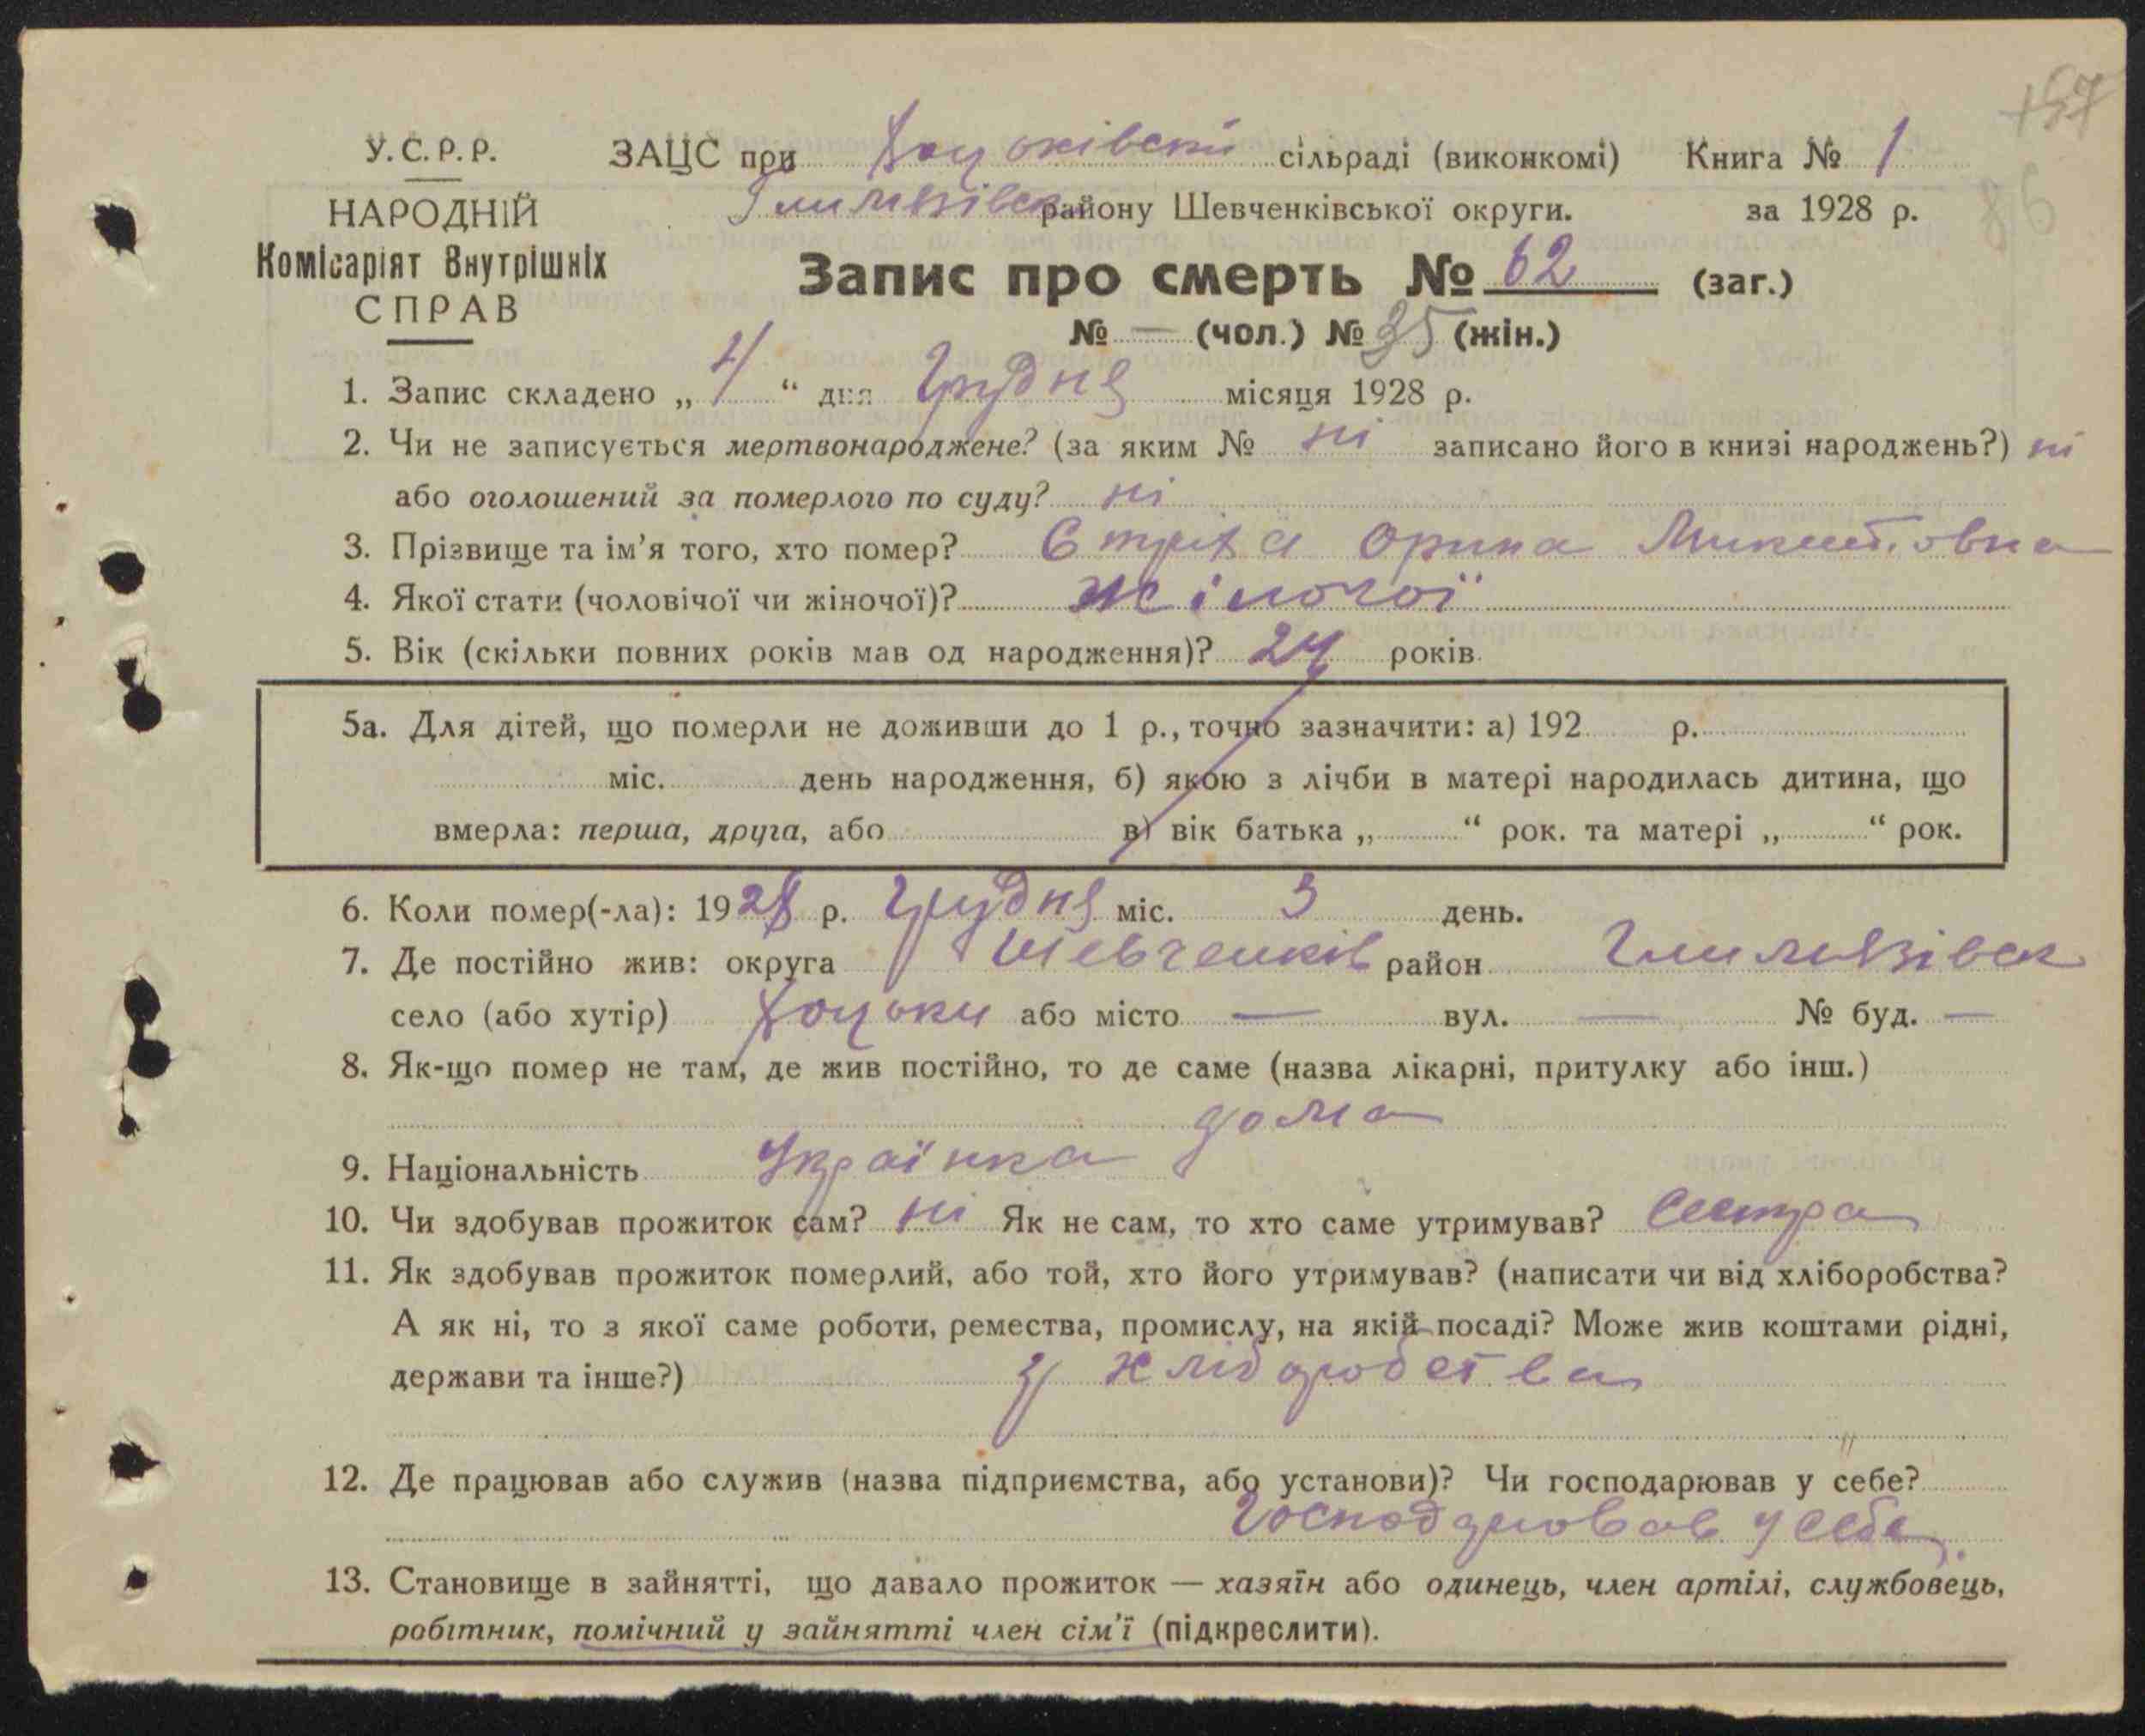 157
У.С.Р.Р. ЗАЦС при Доцюківській сільраді (виконкомі) Книга № 1
86
НАРОДНІЙ Гельмязівськ району Шевченківської округи. за 1928 р.
Комісаріят Внутрішніх
СПРАВ
Запис про смерть № 62 (заг.)
№ — (чол.) № 35 (жін.)
1. Запис складено „ 4 “ дня Грудня місяця 1928 р.
2. Чи не записується мертвонароджене? (за яким № ні записано його в книзі народжень?) ні
або оголошений за померлого по суду? ні
3. Прізвище та ім’я того, хто помер? Стріха Орина Микитовна
4. Якої стати (чоловічої чи жіночої)? жіночої
5. Вік (скільки повних років мав од народження)? 24 років
5а. Для дітей, що померли не доживши до 1 р., точно зазначити: а) 192 р.
міс. день народження, б) якою з лічби в матері народилась дитина, що
вмерла: перша, друга, або в) вік батька „ “ рок. та матері „ “ рок.
6. Коли помер(-ла): 1928 р. Грудня міс. 3 день.
7. Де постійно жив: округа Шевченків район
село (або хутір) або місто — вул. — № буд. —
8. Як-що помер не там, де жив постійно, то де саме (назва лікарні, притулку або інш.)
дома
9. Національність Українка
10. Чи здобував прожиток сам? ні Як не сам, то хто саме утримував? Сестра
11. Як здобував прожиток померлий, або той, хто його утримував? (написати чи від хліборобства?
А як ні, то з якої саме роботи, ремества, промислу, на якій посаді? Може жив коштами рідні,
держави та інше?) з хліборобства
12. Де працював або служив (назва підприємства, або установи)? Чи господарював у себе?
Господарював у себе
13. Становище в зайнятті, що давало прожиток — хазяїн або одинець, член артілі, службовець,
робітник, помічний у зайнятті член сім’ї (підкреслити).